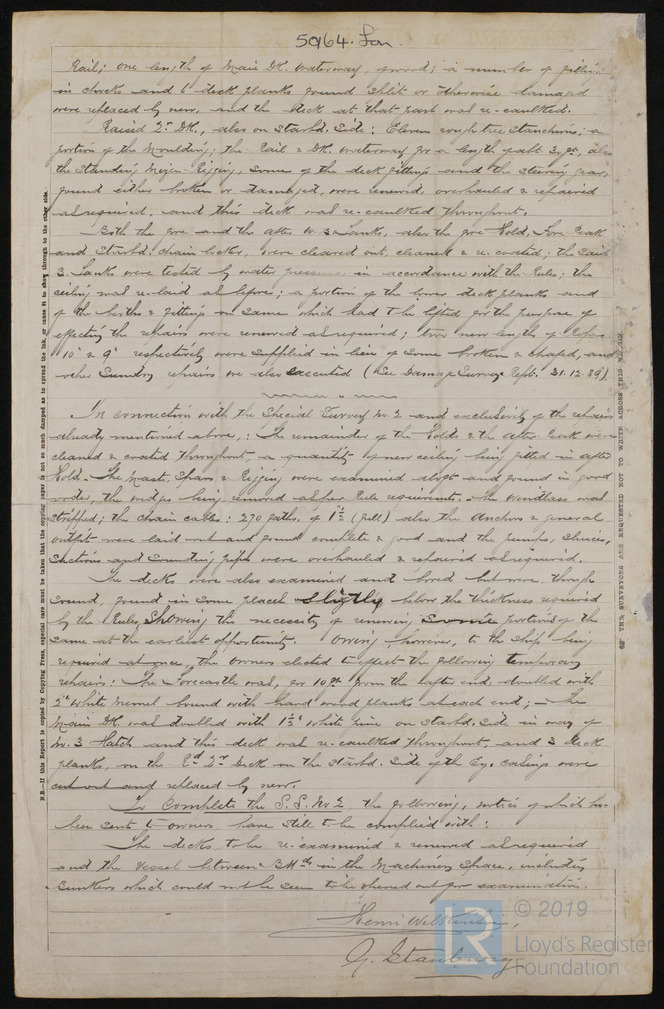 50164. Lon.
Rail; one length of Main Dk. Waterway, ; a number of
in chocks and 6 deck planks found split or otherwise damaged
were replaced by new, and the deck at that part was re-caulked.
Raised Qr. Dk., also on starbd. side: Eleven roughtree stanchions; a
portion of the Moulding; the Rail & Dk. Waterway for a length of abt. 34 ft, also
the Standing Mizen Rigging, some of the deck fittings and the steering gear,
found either broken or damaged, were renewed, overhauled & repaired
as required, and this deck was re-caulked throughout.
Both the fore and the after W. B. Tanks, also the fore Hold, Fore Peak
and Starbd. chain locker, were cleared out, cleaned & re-coated; the said
B. Tanks were tested by water pressure in accordance with the Rules; the
ceiling was re-laid as before; a portion of the lower deck planks and
of the berths & fittings on same which had to be lifted for the purpose of
effecting the repairs were renewed as required; two new lengths of
10" & 9" respectively were supplied in lieu of some broken & chafed, and
other Sundry repairs were also executed (See Damage Survey Rept. 31.12.89).
In connection with the Special Survey No. 2 and exclusively of the repairs
already mentioned above,: The remainder of the Holds & the After Peak were
cleaned & coated throughout, a quantity of new ceiling being fitted in after
Hold. The Masts, Spars & Rigging were examined aloft and found in good
order, the wedges being removed as per Rule requirements. The windlass was
stripped; the chain cables: 270 faths. of 1½ (full) also the Anchors & general
outfit were laid out and found complete & good and the pumps, sluices,
suctions and sounding pipes were overhauled & repaired as required.
The decks were also examined and bored but were, though
sound, found in some places slightly below the thickness required
by the Rules, Showing the necessity of renewing some portions of the
same at the earliest opportunity. Owing, however, to the ship being
required at once, the owners elected to effect the following temporary
repairs: The Forecastle was, for 10 ft from the after end, doubled with
2" white Memel bound with hard wood planks at each end; – The
Main Dk. was doubled with 1½" white pine on starbd. side in way of
No. 3 Hatch and this deck was re-caulked throughout, and 3 deck
planks, on the Rd Qr Deck on the starbd. side of the Eng. casings were
cut out and replaced by new.
To Complete the S.S. No 2, the following, notice of which has
been sent to owners have still to be complied with:
The decks to be re-examined & renewed as required
and the vessel between BHds in the Machinery Space, including
bunkers which could not be seen to be cleared out for examination.
Henri Wilkinson,
G. Stanbury
N.B.—If this Report is copied by Copying Press, especial care must be taken that the copying paper is not so much damped as to spread the ink, or cause it to show through to the other side.
THE SURVEYORS ARE REQUESTED NOT TO WRITE ACROSS THIS
R
© 2019
Lloyd's Register
Foundation